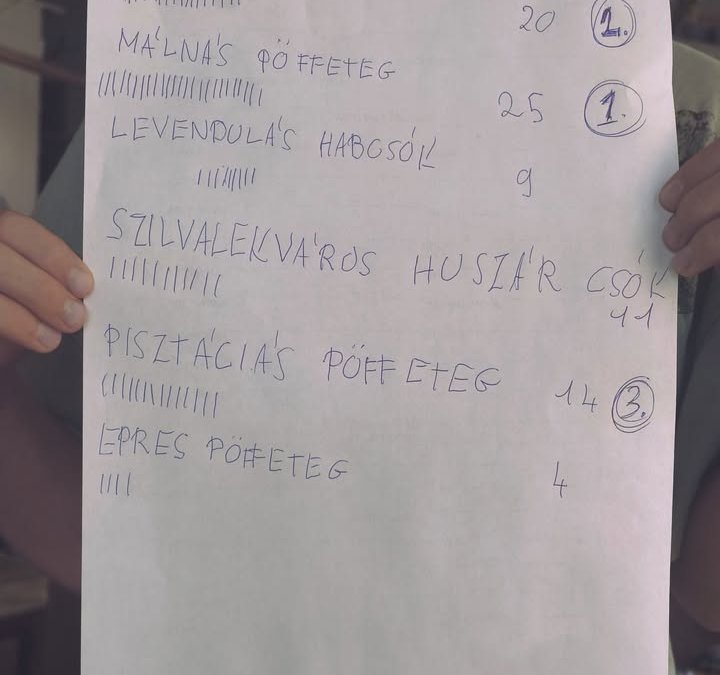 20 2.
MÁLNÁS PÖFFETEG
25 1.
LEVENDULÁS HABCSÓK
9
SZILVALEKVÁROS HUSZÁR CSÓK
11
PISZTÁCIÁS PÖFFETEG
14 3.
EPRES PÖFFETEG
4